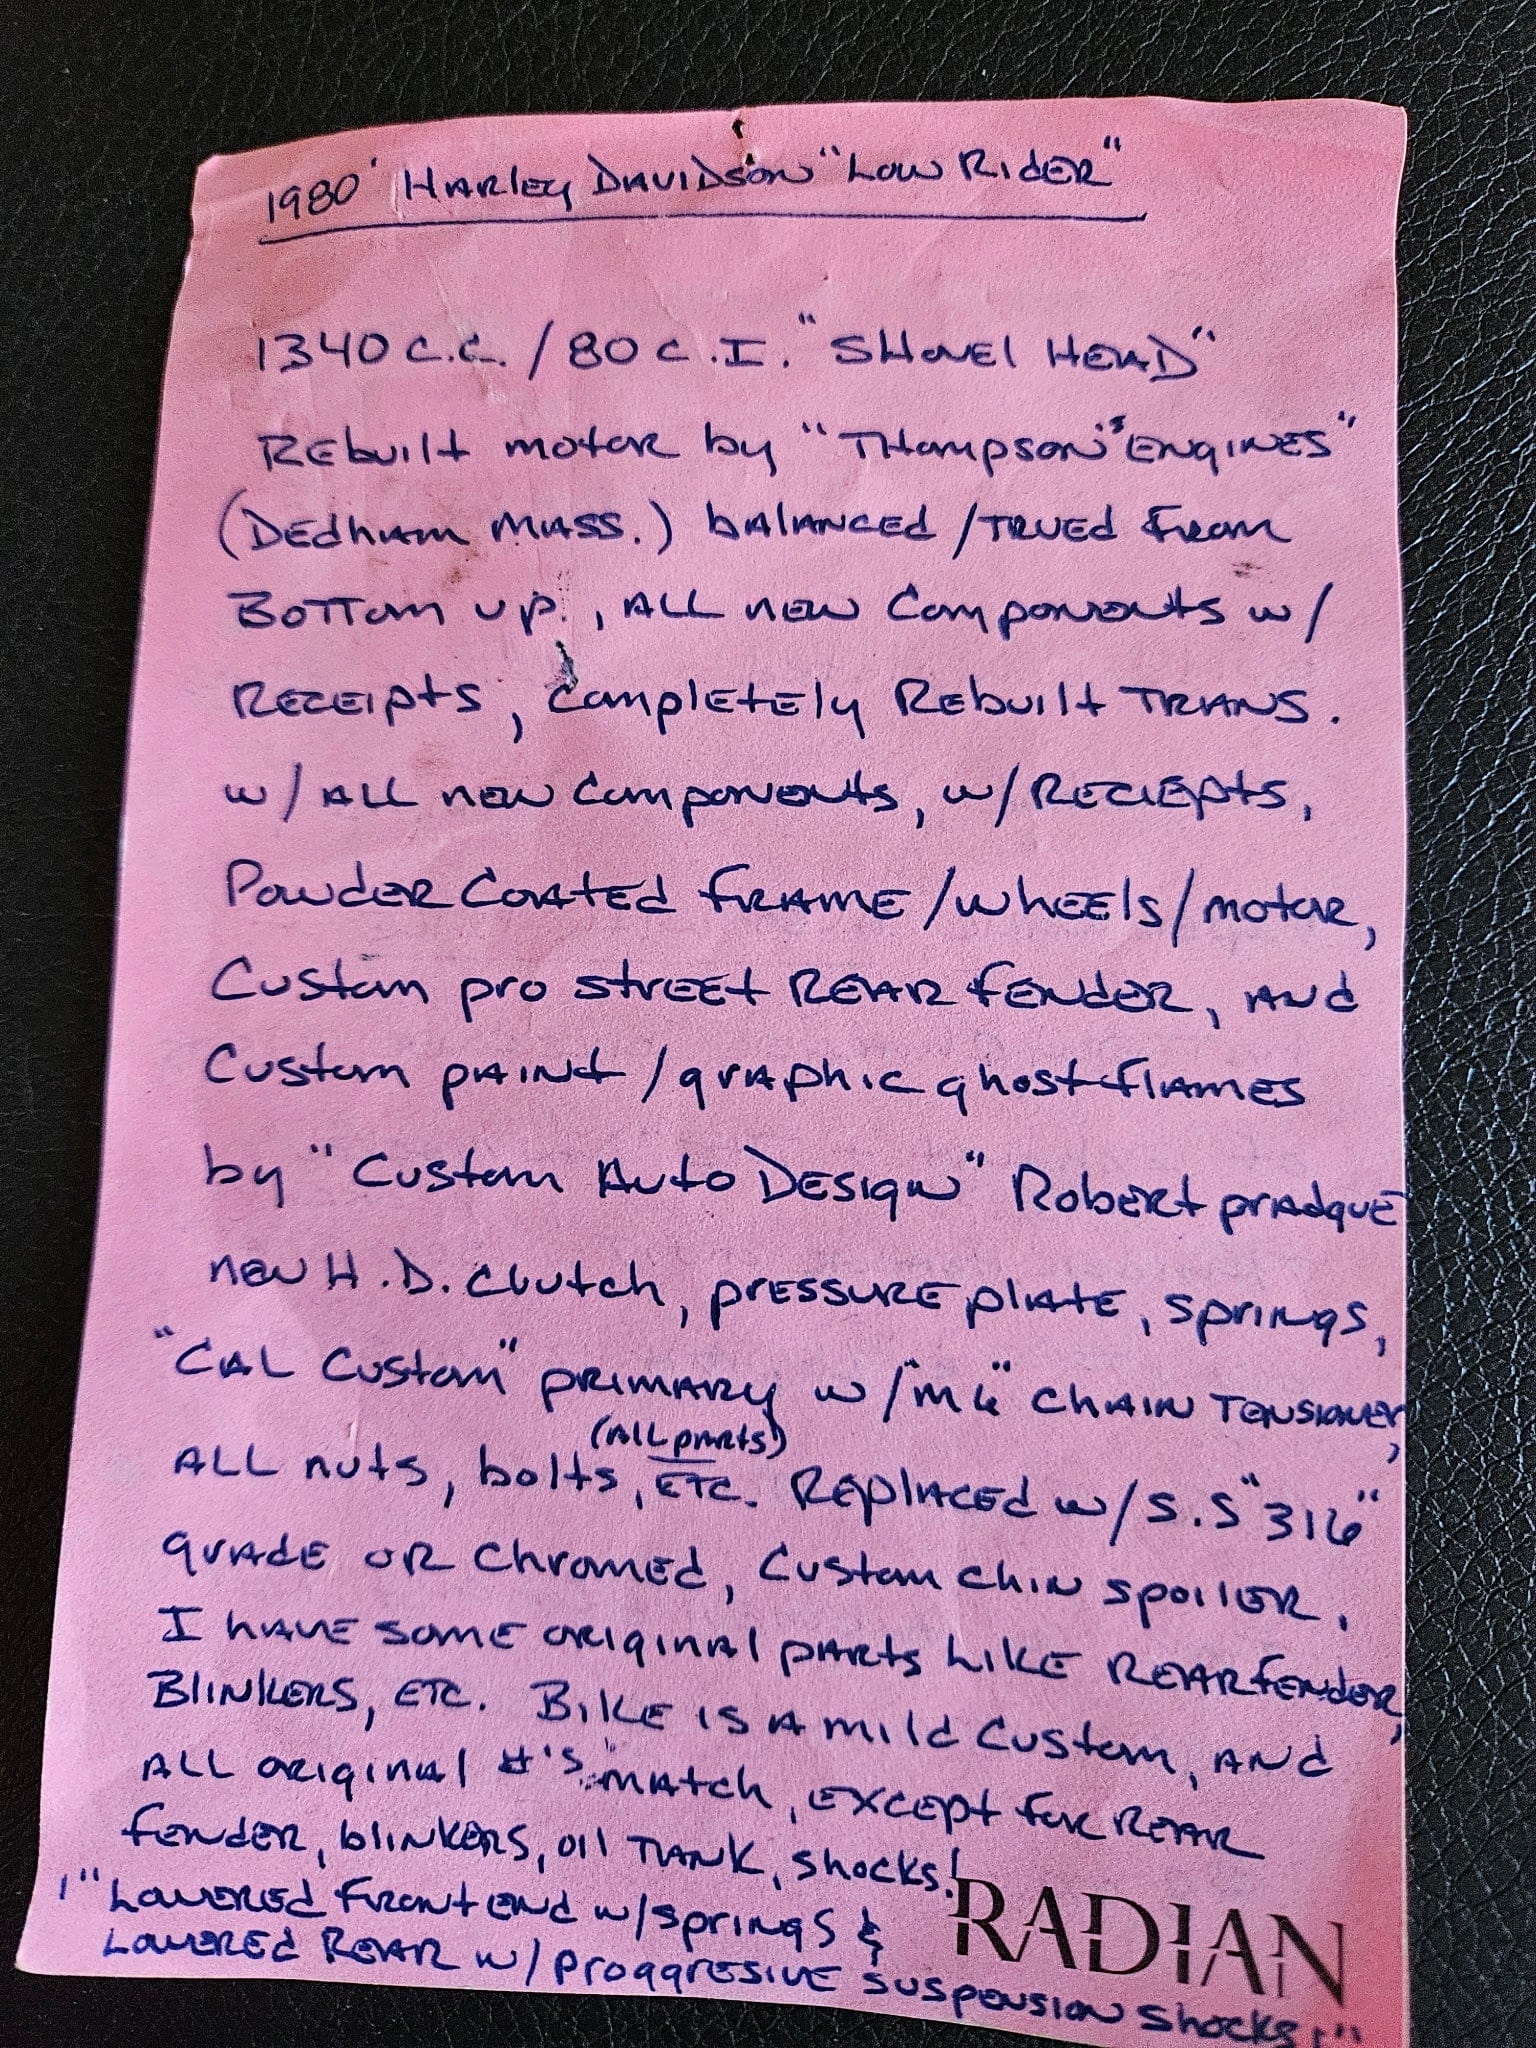 1980' HARley DAVIDSON "Low RidER"
1340 C.C. / 80 C.I. "SHovEl HEAD"
REbuilt motor by "THompson's ENgiNES"
(DEdham MASS.) bALANCEd /TRUEd From
BoTTom up., ALL NEW ComponENts w/
RECEIpts, ComplEtEly REbuilt TRANS.
w/ALL NEW ComponENts, w/RECIEpts,
PowdER CoAtEd FRAME/whEEls/motor,
Custom pro strEEt REAR FENdER, ANd
Custom pAINt/grAphic ghost flAMES
by "Custom Auto DESigN" RobERt prAdquE
NEW H.D. Clutch, pRESSURE plAtE, spriNgs,
"CAL Custom" pRIMARy w/"M6" CHAIN TENSIONER,
(ALL pARtS)
ALL Nuts, bolts, ETC. REplACEd w/S.S "316"
grAdE OR ChromEd, Custom chin spoilER.
I HAVE somE origiNAl pARts LIKE REAR FENdER,
BliNKERS, ETC. BIKE is A mild Custom, ANd
ALL origiNAl #'s "mAtch, EXCEpt for REAR
FENdER, bliNKERS, oil TANK, shocks!
!"LowEREd Front ENd w/spriNgs &
LowEREd REAR w/proggRESIVE suspENSION shocks!"
RADIAN